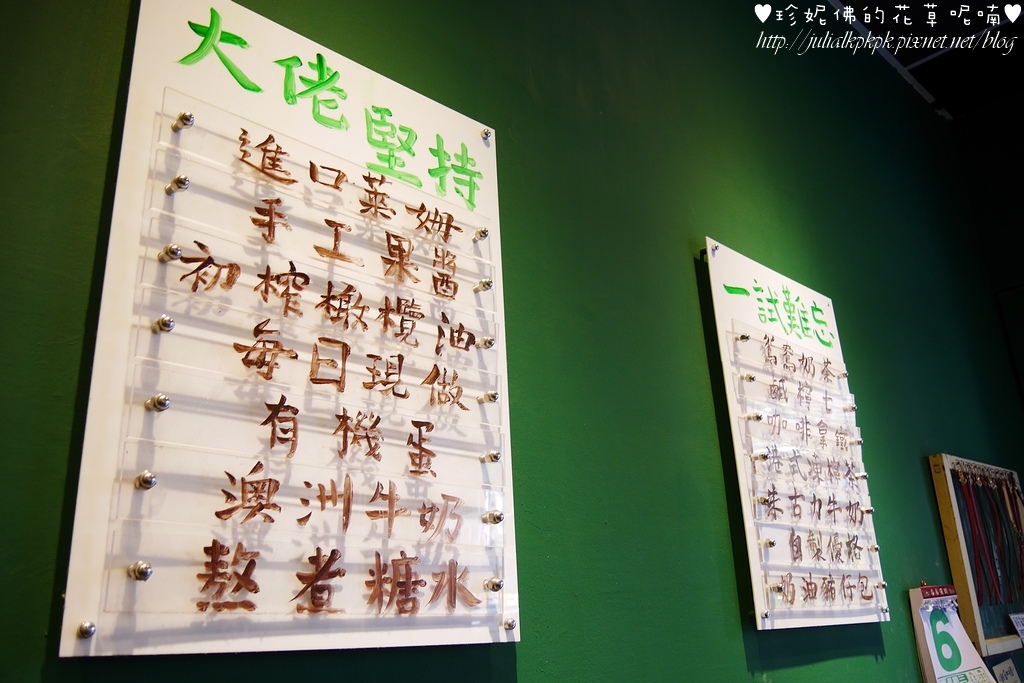 ♥珍妮佛的花草呢喃♥
http://julialkpkpk.pixnet.net/blog
大佬堅持
進口萊姆
手工果醬
初榨橄欖油
每日現做
有機蛋
澳洲牛奶
熬煮糖水
一試難忘
鴛鴦奶茶
鹹檸七
咖啡拿鐵
港式凍檸茶
朱古力牛奶
自製優格
奶油豬仔包
6